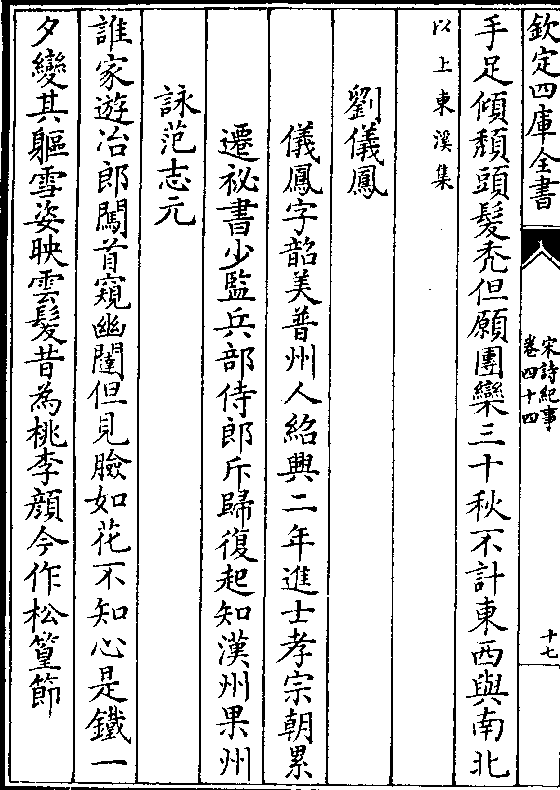 欽定四庫全書
宋詩紀事
卷四十四
十七
手足傾頹頭髮禿但願團欒三十秋不計東西與南北
以上東溪集
劉儀鳳
儀鳳字韶美普州人紹興二年進士孝宗朝累
遷祕書少監兵部侍郎斥歸復起知漢州果州
詠范志元
誰家遊冶郎闖首窺幽闥但見臉如花不知心是鐵一
夕變其軀雪姿映雲髮昔為桃李顏今作松篁節